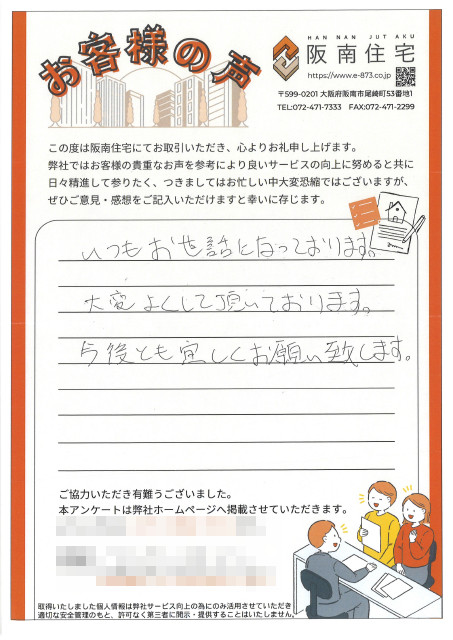 お客様の声
HAN NAN JUTAKU
阪南住宅
https://www.e-873.co.jp
〒599-0201 大阪府阪南市尾崎町53番地1
TEL:072-471-7333 FAX:072-471-2299
この度は阪南住宅にてお取引いただき、心よりお礼申し上げます。
弊社ではお客様の貴重なお声を参考により良いサービスの向上に努めると共に
日々精進して参りたく、つきましてはお忙しい中大変恐縮ではございますが、
ぜひご意見・感想をご記入いただけますと幸いに存じます。
いつもお世話となっております。
大変よくして頂いております。
今後とも宜しくお願い致します。
ご協力いただき有難うございました。
本アンケートは弊社ホームページへ掲載させていただきます。
取得いたしました個人情報は弊社サービス向上の為にのみ活用させていただき
適切な安全管理のもと、許可なく第三者に開示・提供することはいたしません。